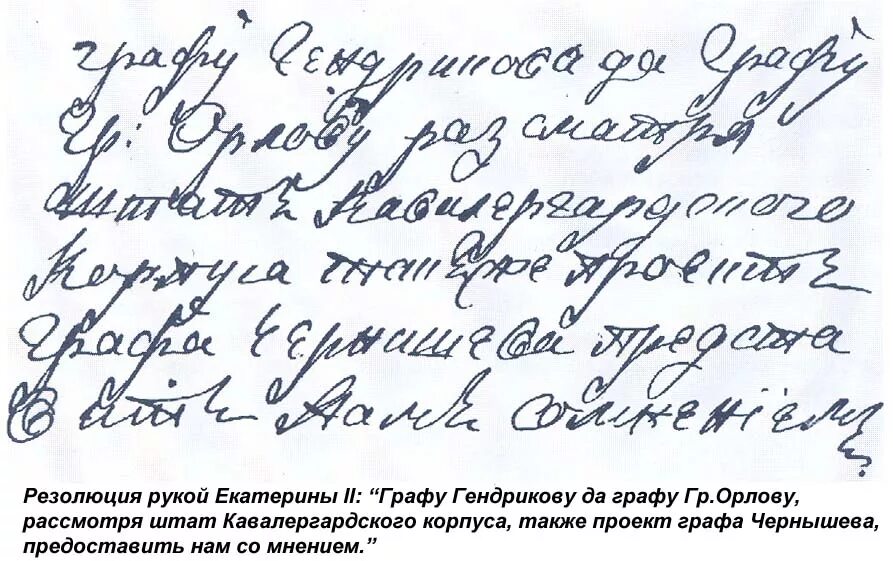 Графу Гендрикова да Графу
Гр: Орлову разсматря
штатъ Кавалергардского
Корпуса также проектъ
Графа Чернишева предста
вить намъ сомненіемъ
Резолюция рукой Екатерины II: “Графу Гендрикову да графу Гр.Орлову,
рассмотря штат Кавалергардского корпуса, также проект графа Чернышева,
предоставить нам со мнением.”